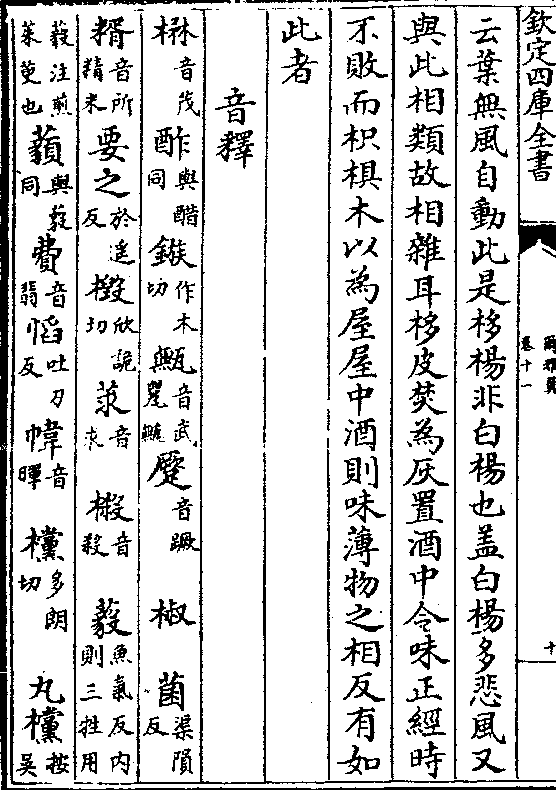 欽定四庫全書
爾雅翼
卷十一
十
云葉無風自動此是栘楊非白楊也盖白楊多悲風又
與此相類故相雜耳栘皮焚為灰置酒中令味正經時
不敗而枳椇木以為屋屋中酒則味薄物之相反有如
此者
音釋
楙音茂 酢與醋同 鏃作木切 甒音武 蹷音蹶 椒 菌渠隕反
糈音所精米 要之於遥反 㯏欣詭切 莍音求 樧音殺 藙魚氣反内則三牲用
藙注煎茱萸也 藾與藙同 費音翡 慆吐刀反 幃音暉 欓多朗切 丸欓按吳